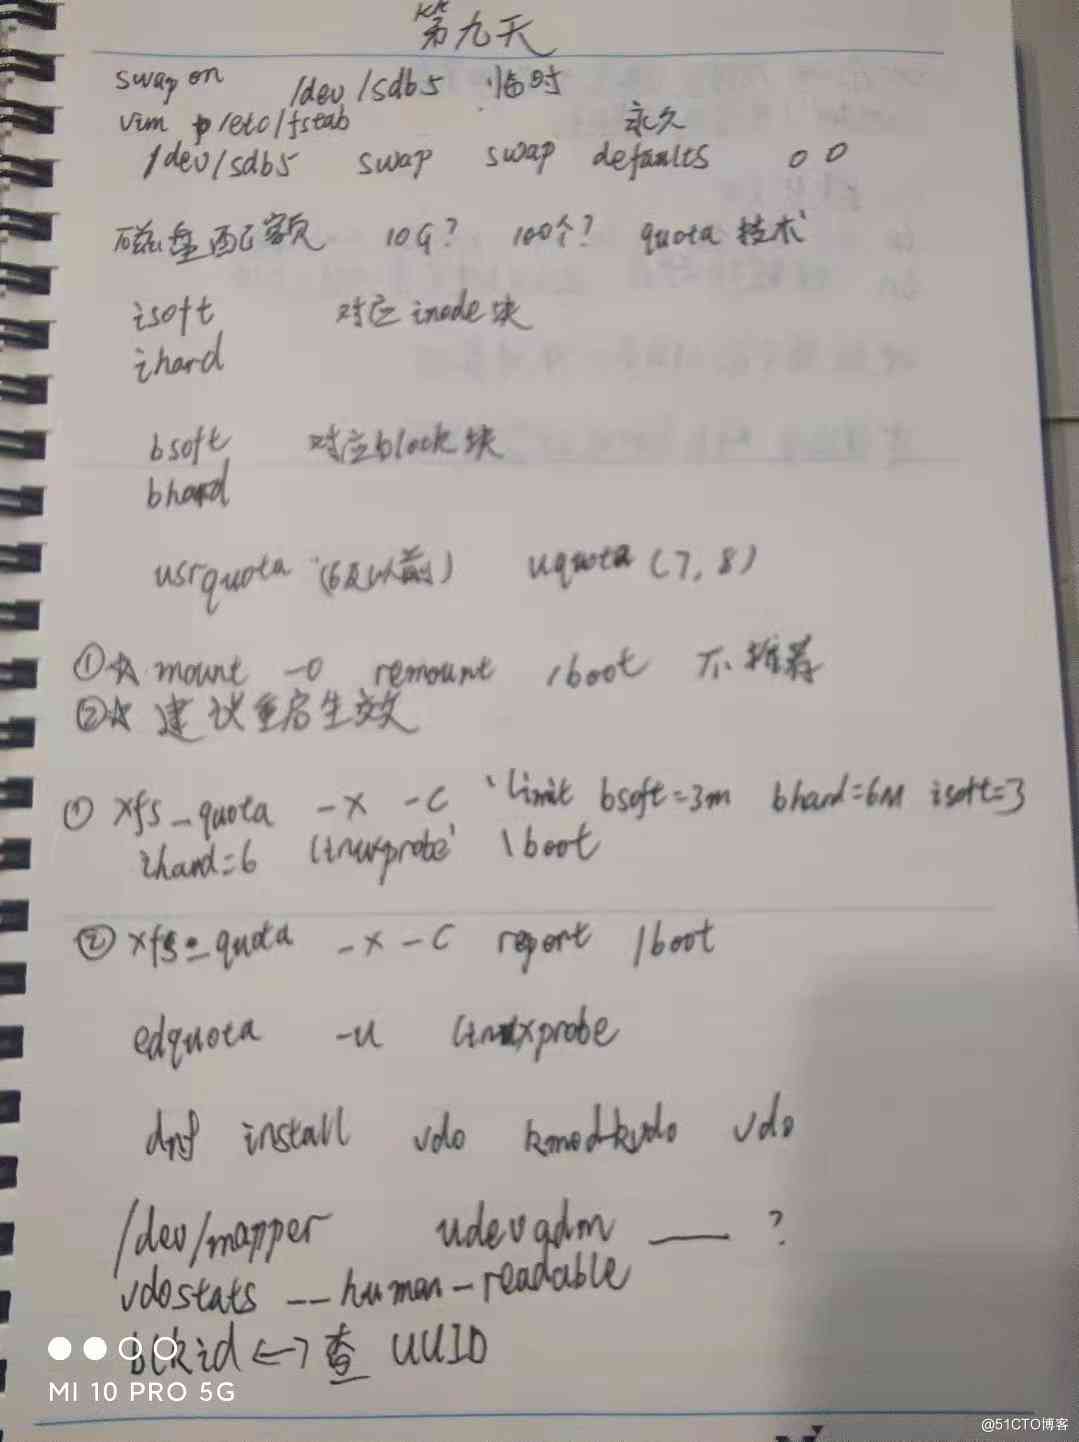 第九天
swap on /dev/sdb5 临时
vim /etc/fstab 永久
/dev/sdb5 swap swap defaults 0 0
磁盘配额 10G? 100个? quota 技术
isoft 对应 inode 块
ihard
bsoft 对应 block 块
bhard
usrquota (6及以前) uquota (7, 8)
①☆ mount -o remount /boot 不推荐
②☆ 建议重启生效
① xfs_quota -x -c 'limit bsoft=3m bhard=6m isoft=3
ihard=6 linuxprobe' \boot
② xfs_quota -x -c report /boot
edquota -u linuxprobe
dnf install vdo kmod-kvdo vdo
/dev/mapper udevadm —— ?
vdostats --human-readable
blkid <-> 查 UUID
MI 10 PRO 5G
@51CTO博客